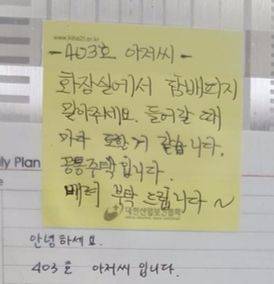 www.kiha21.or.kr
- 403호 아저씨 -
화장실에서 담배피지
말아주세요. 들어갈 때
마다 토할거 같습니다.
공동주택입니다.
배려 부탁 드립니다~
대한산업보건협회
ly Plan
안녕하세요.
403호 아저씨 입니다.